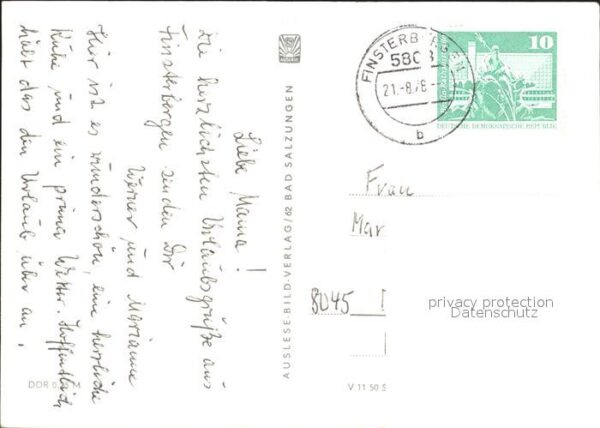 Liebe Mama!
Die herzlichsten Urlaubsgrüße aus
Finsterbergen senden Dir
Werner und Marianne
Hier ist es wunderschön, eine herrliche
Ruhe und ein prima Wetter. Hoffentlich
hält das den Urlaub über an.
DDR 0, M
AUSLESE-BILD-VERLAG/62 BAD SALZUNGEN
FINSTERBERGEN
5808
21.-8.78-
b
10
DEUTSCHE DEMOKRATISCHE REPUBLIK
Frau
Mar
8045
privacy protection
Datenschutz
V 11 50 S